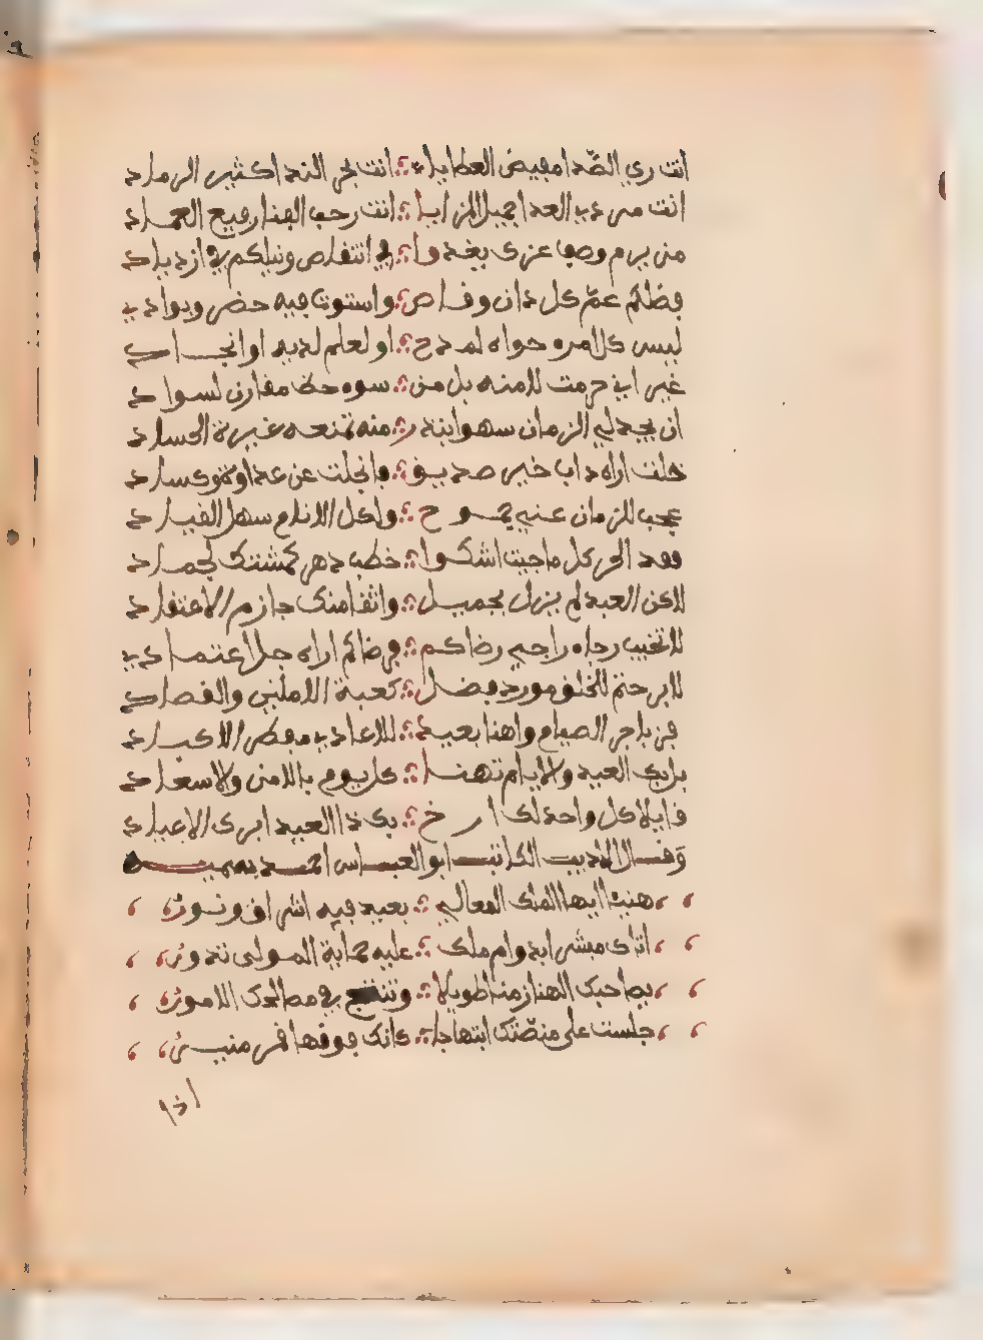 انت ري الصّدا مفيض العطايا ؞ انت بحر الندا كثير الرماد
انت مردي العدا جميل المزايا ؞ انت رحب الفنا رفيع العماد
من يرم وصف عزك يغدوا ؞ في انتقاص ونيلكم في ازدياد
فضلكم عمّ كل دان وقاص ؞ واستوت فيه حضر وبوادي
ليس كل امرء حواه لمدح ؞ او لعلم لديه او انجاد
غير اني حرمت لا منه بل من ؞ سوء حظ مقارن لسواد
ان يجد لي الزمان سهوا بنذر ؞ منه تمنعه غيرة الحساد
خلت اراه داب خير صديق ؞ فانجلت عن عداوة وكساد
عجب للزمان عني جموح ؞ ولكل الانام سهل القياد
فقد الحر كل ما جيت اشكوا ؞ خطب دهر كمشتك لجماد
لاكن العبد لم يزل بجميل ؞ واثقا منك جازم الاعتقاد
لا تخيب رجاه راجي رضاكم ؞ فرضاكم اراه جل اعتمادي
لا برحتم للخلق مورد فضل ؞ كعبة الاملين والقصاد
فز باجر الصيام واهنا بعيد ؞ للاعادي مفطر الاكباد
بل بك العيد والايام تهنا ؞ كل يوم بالامن والاسعاد
فايلا كل واحد لك ارخ ؞ بك ذا العيد ابرك الاعياد
وقال الاديب الكاتب ابو العباس احمد
هنيئا ايها الملك المعالي ؞ بعيد فيه اشراق ونور
اتاك مبشرا بدوام ملك ؞ عليه حماية المولى تدور
يصاحبك الهنا زمنا طويلا ؞ وتنتج في مصالحك الامور
جلست على منصّتك ابتهاجا ؞ كانك فوقها قمر منير